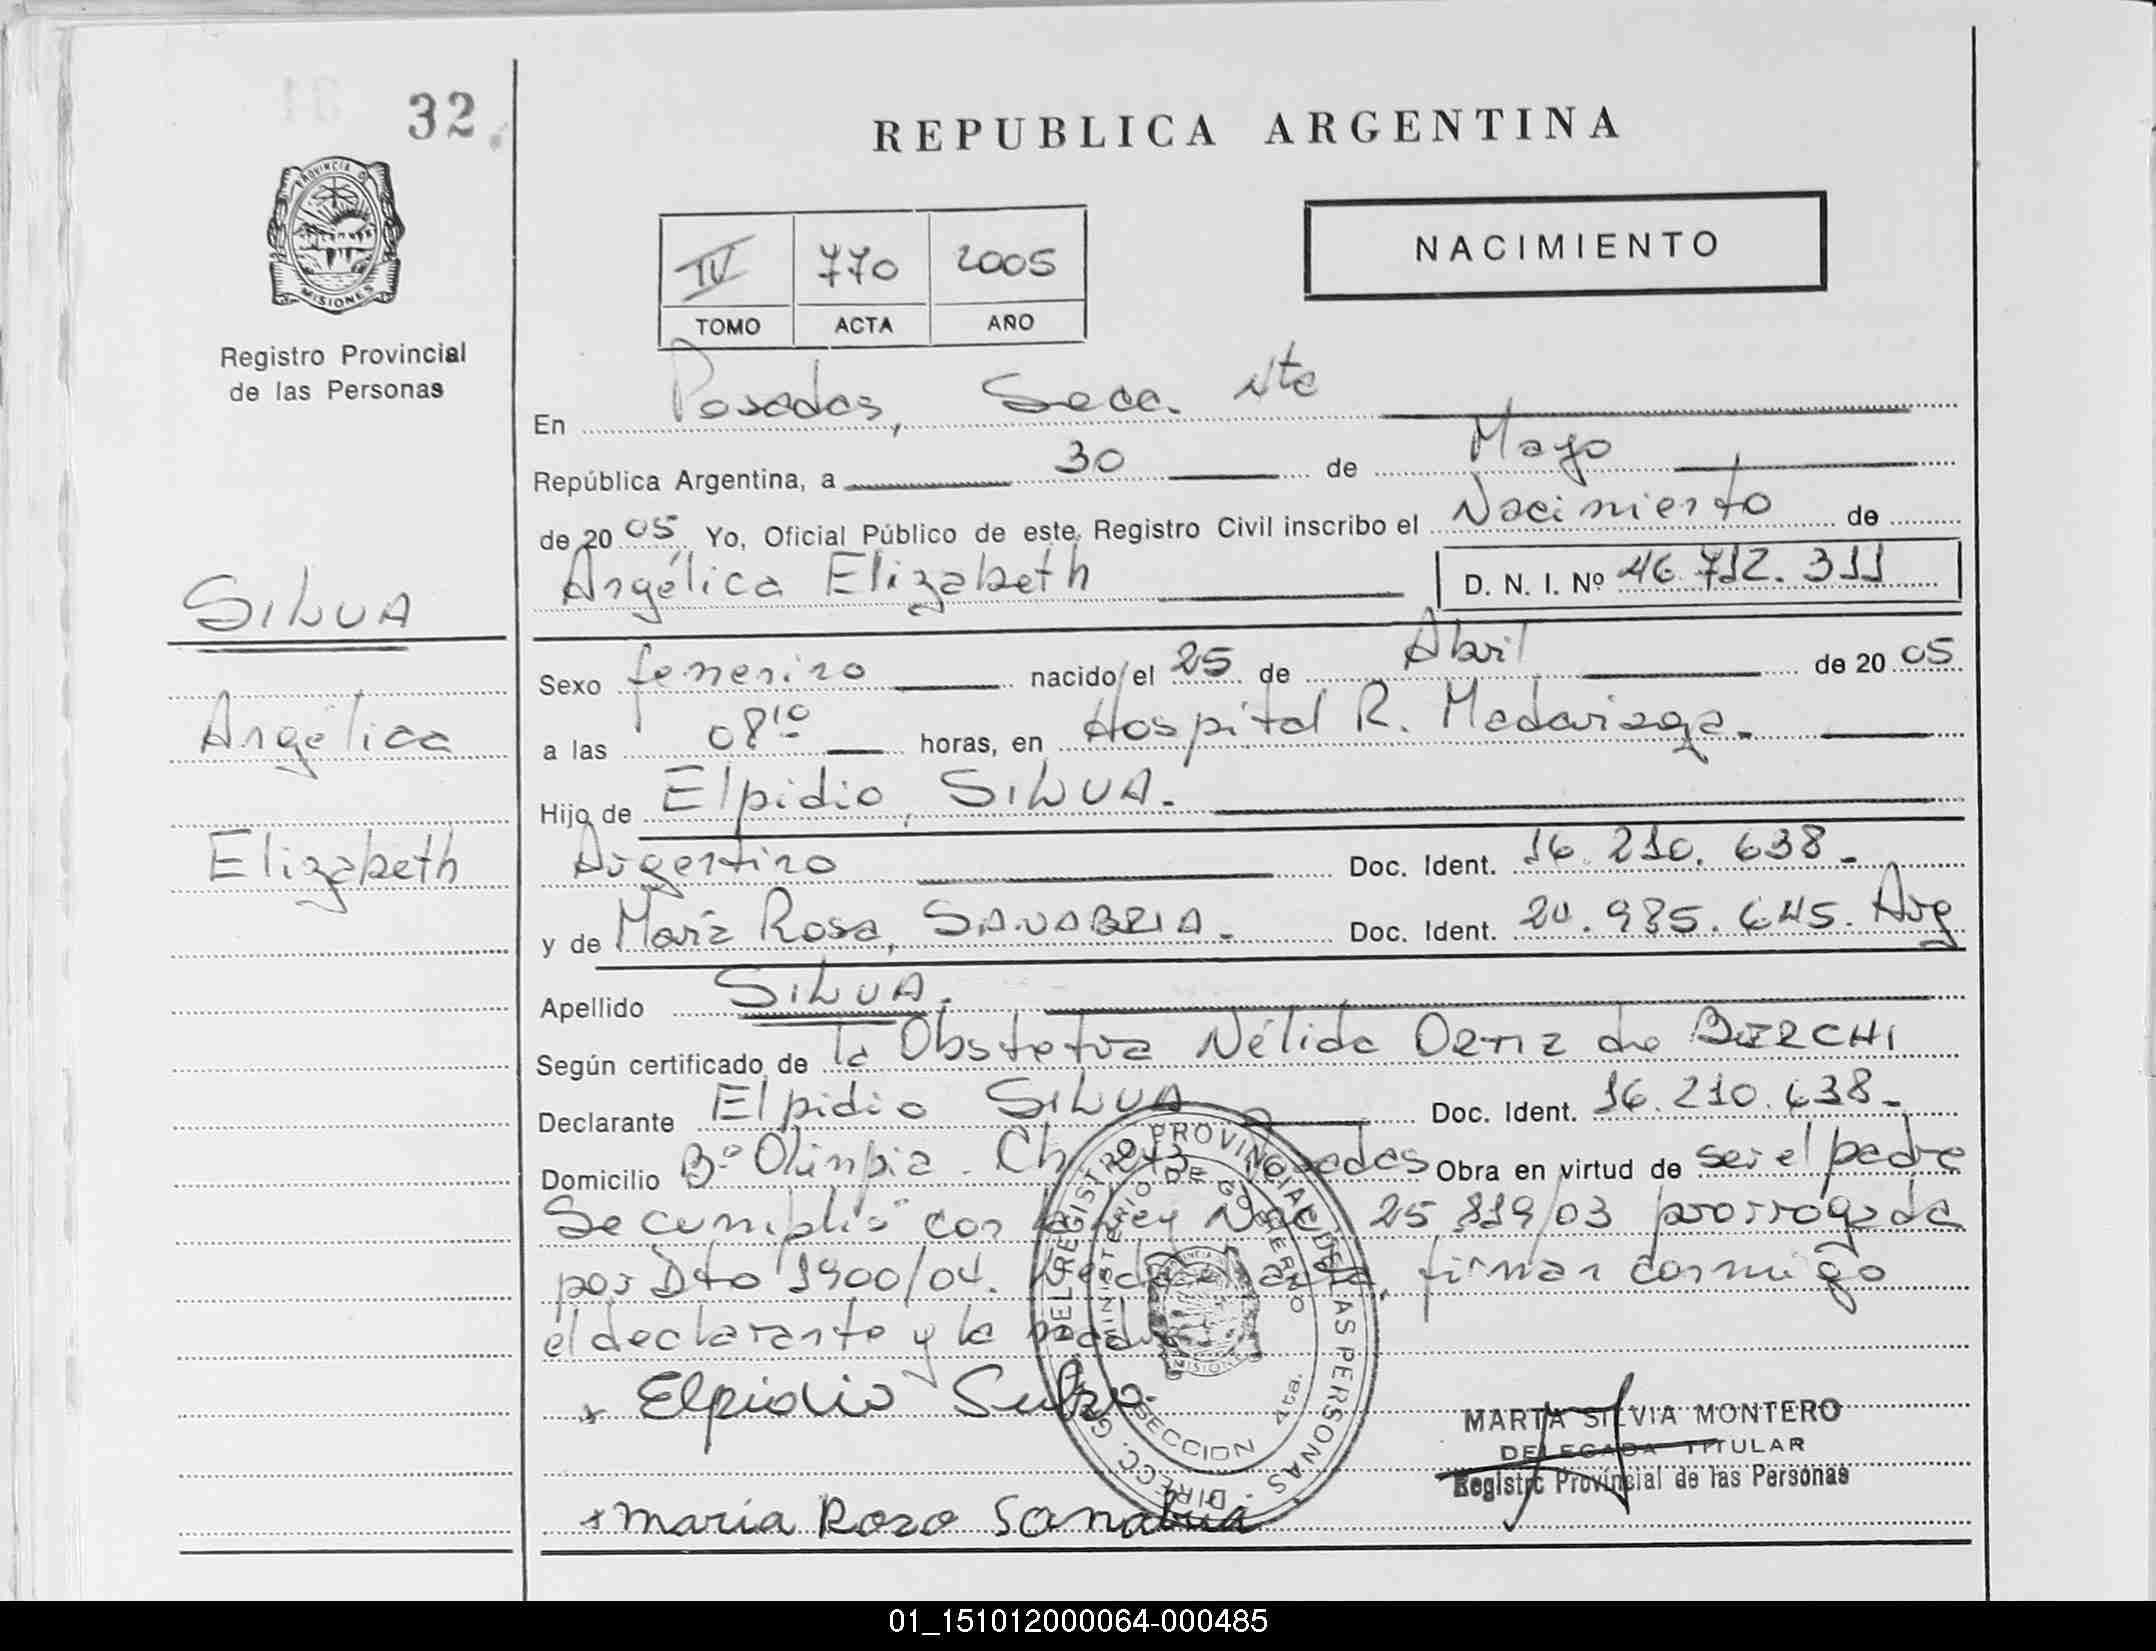 32
REPUBLICA ARGENTINA
PROVINCIA D
MISIONES
Registro Provincial
de las Personas
NACIMIENTO
IV 770 2005
TOMO ACTA AÑO
En Posadas, Secc. 4ta
República Argentina, a 30 de Mayo
de 2005 Yo, Oficial Público de este Registro Civil inscribo el Nacimiento de
Angélica Elizabeth D. N. I. Nº 46.712.311
SILVA
Angélica
Elizabeth
Sexo femenino nacido el 25 de Abril de 2005
a las 08 10 horas, en Hospital R. Madariaga.
Hijo de Elpidio, SILVA.
Argentino Doc. Ident. 16.210.638-
y de María Rosa, SANABRIA. Doc. Ident. 20.985.645. Arg
Apellido SILVA.
Según certificado de la Obstetra Nélida ORTIZ de
Declarante Elpidio SILVA Doc. Ident. 16.210.638-
Domicilio Bº Olimpia. Ch Posadas Obra en virtud de ser el padre
Se cumplió con la Ley Nac. 25.819/03 prorrogada
por Dto 1900/04. firman conmigo
el declarante y la madre
x Elpidio Silva
x maria Rosa Sanabria
DIRECC. GRAL DEL REGISTRO PROVINCIAL DE LAS PERSONAS
MINISTERIO DE GOBIERNO
MISIONES
SECCION 4ta.
MARTA SILVIA MONTERO
DELEGADA TITULAR
Registro Provincial de las Personas
01_151012000064-000485